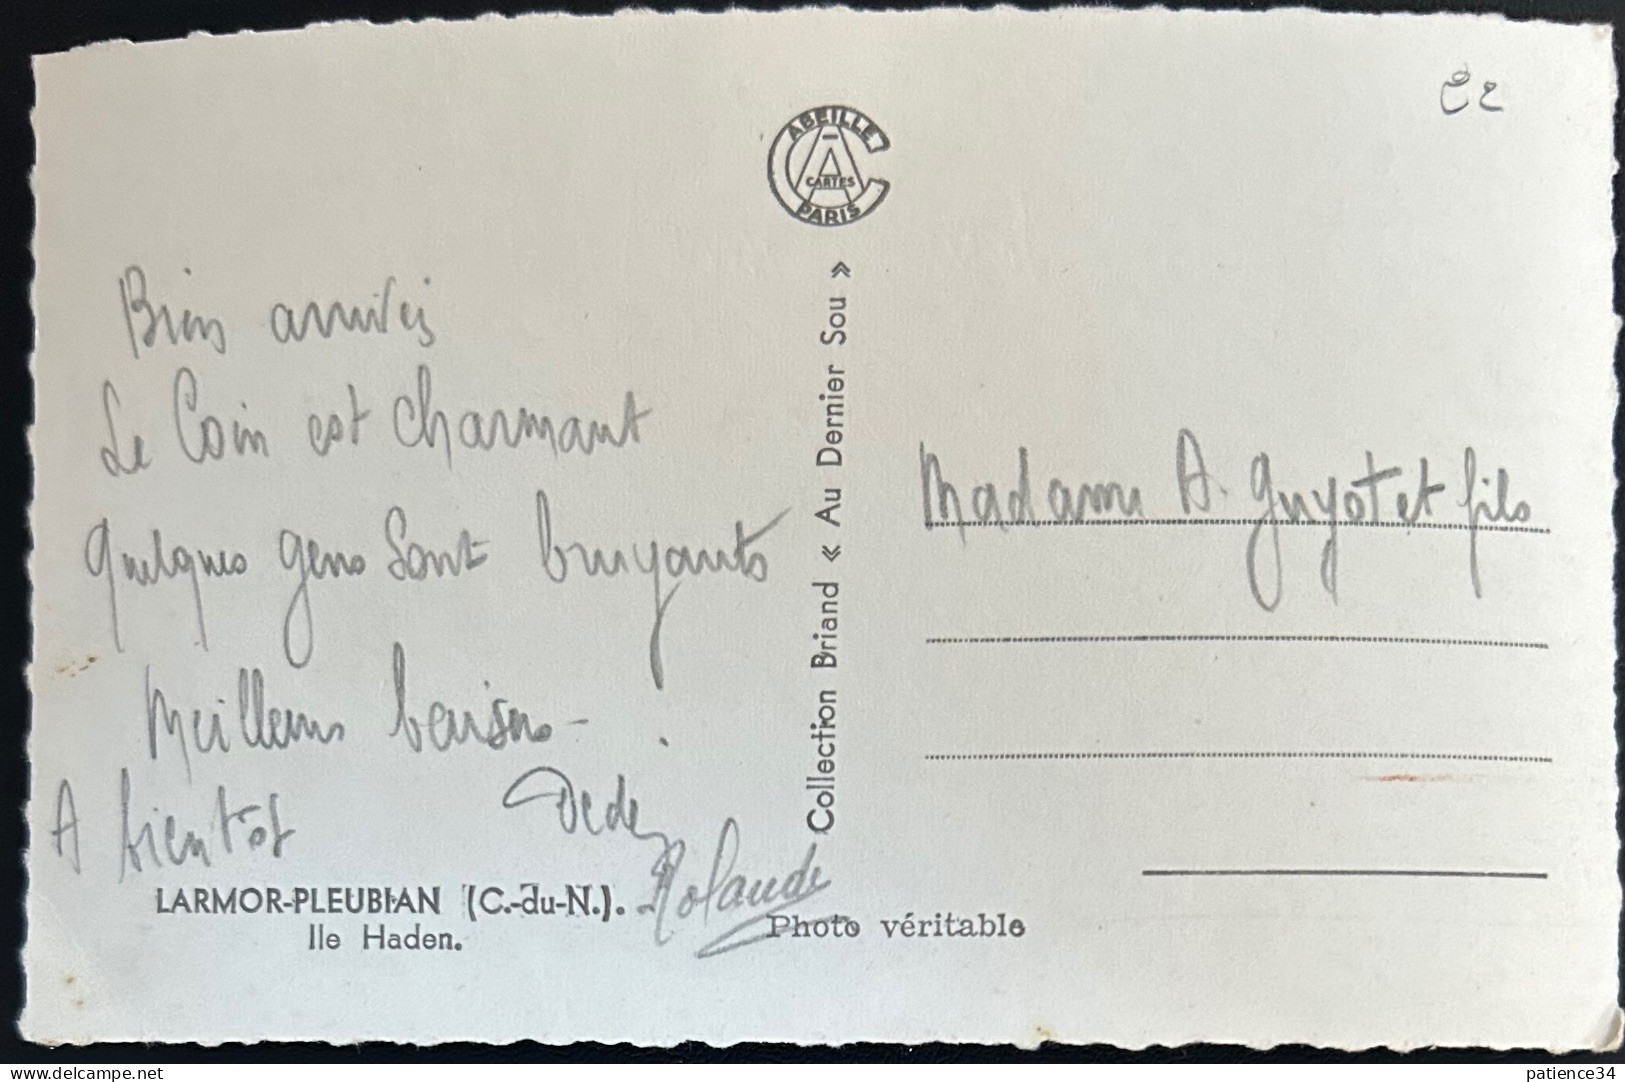 22
ABEILLE
CARTES
PARIS
Bien arrivés
Le Coin est charmant
Quelques gens sont bruyants
Meilleurs baisers -
A bientôt
Dédé
Rolande
LARMOR-PLEUBIAN (C.-du-N.).
Ile Haden.
Collection Briand « Au Dernier Sou »
Photo véritable
Madame A. Guyot et fils
delcampe.net
patience34